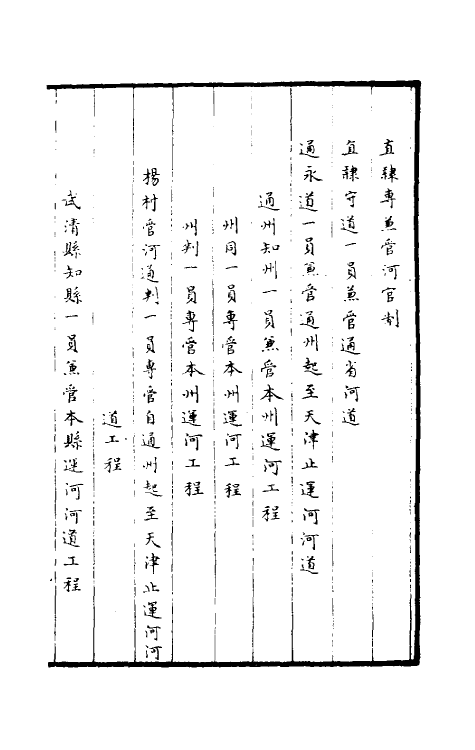 直隸專兼管河官制
直隸守道一員兼管通省河道
通永道一員兼管通州起至天津止運河河道
通州知州一員兼管本州運河工程
州同一員專管本州運河工程
州判一員專管本州運河工程
楊村管河通判一員專管自通州起至天津止運河河
道工程
武清縣知縣一員兼管本縣運河河道工程